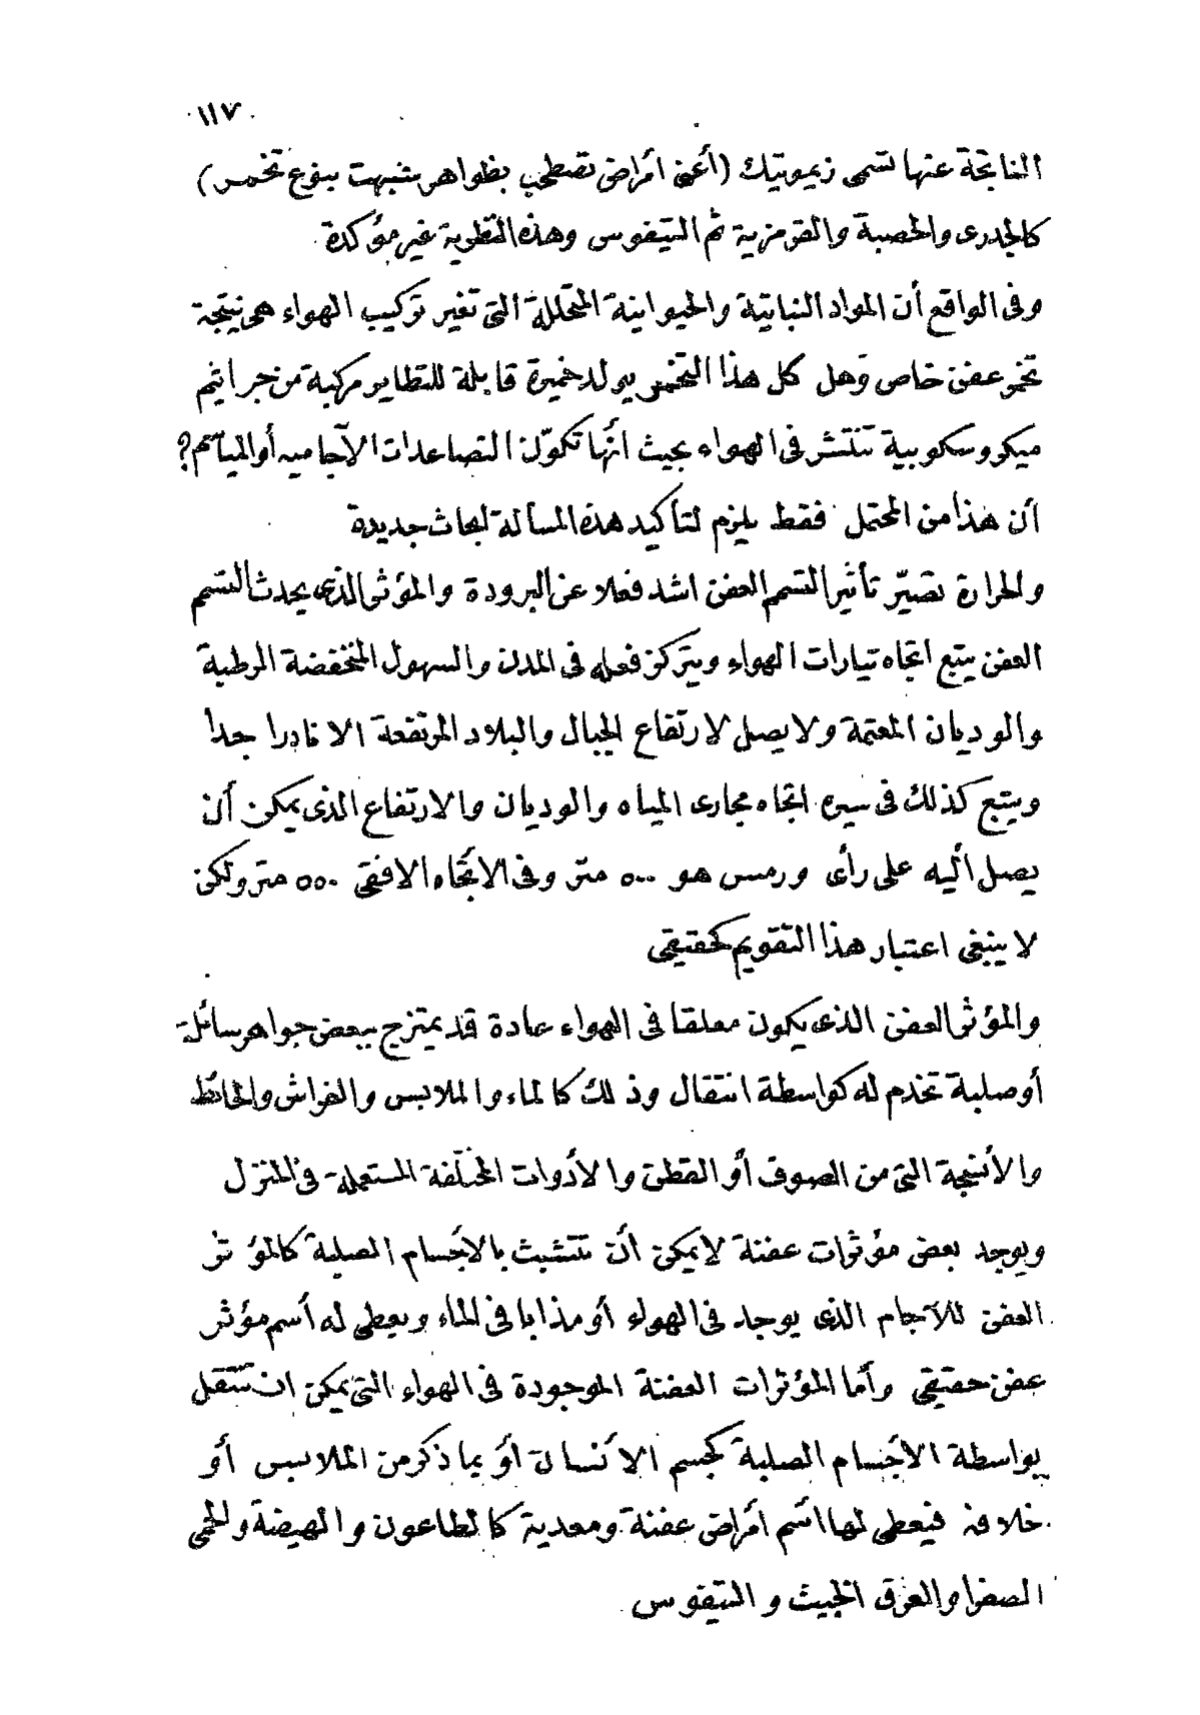 ١١٧
الناتجة عنها تسمى زيموتيك (أعنى أمراض تصطحب بظواهر شبهت بنوع تخمر)
كالجدرى والحصبة والقرمزية ثم التيفوس وهذه النظرية غير مؤكدة
وفى الواقع أن المواد النباتية والحيوانية المتحللة التى تغير تركيب الهواء هى نتيجة
تخمر عفن خاص وهل كل هذا التخمر يولد خميرة قابلة للتطاير مركبة من جراثيم
ميكروسكوبية تنتشر فى الهواء بحيث انها تكوّن التصاعدات الآجاميه أو الميآسم؟
أن هذا من المحتمل فقط يلزم لتأكيد هذه المسألة ابحاث جديدة
والحرارة تصيّر تأثير التسمم العفن اشد فعلا عن البرودة والمؤثر الذى يحدث التسمم
العفن يتبع اتجاه تيارات الهواء ويتركز فعله فى المدن والسهول المنخفضة الرطبة
والوديان المعتمة ولا يصل لارتفاع الجبال والبلاد المرتفعة الا نادرا جدا
ويتبع كذلك فى سيره اتجاه مجارى المياه والوديان والارتفاع الذى يمكن أن
يصل أليه على رأى ورمس هو ٥٠٠ متر وفى الاتجاه الافقى ٥٥٠ متر ولكن
لا ينبغى اعتبار هذا التقويم كحقيقى
والمؤثر العفن الذى يكون معلقا فى الهواء عادة قد يمتزج ببعض جواهر سائلة
أو صلبة تخدم له كواسطة انتقال وذلك كالماء والملابس والفراش والحائط
والأنسجة التى من الصوف أو القطن والأدوات المختلفة المستعملة فى المنزل
ويوجد بعض مؤثرات عفنة لا يمكن أن تتشبث بالأجسام الصلبة كالمؤثر
العفن للآجام الذى يوجد فى الهواء أو مذابا فى الماء ويعطى له أسم مؤثر
عفن حقيقى وأما المؤثرات العفنة الموجودة فى الهواء التى يمكن ان تنتقل
بواسطة الأجسام الصلبة كجسم الأنسان أو بما ذكر من الملابس أو
خلافه فيعطى لها اسم أمراض عفنة ومعدية كالطاعون والهيضة والحمى
الصفرا والعرق الخبيث والتيفوس